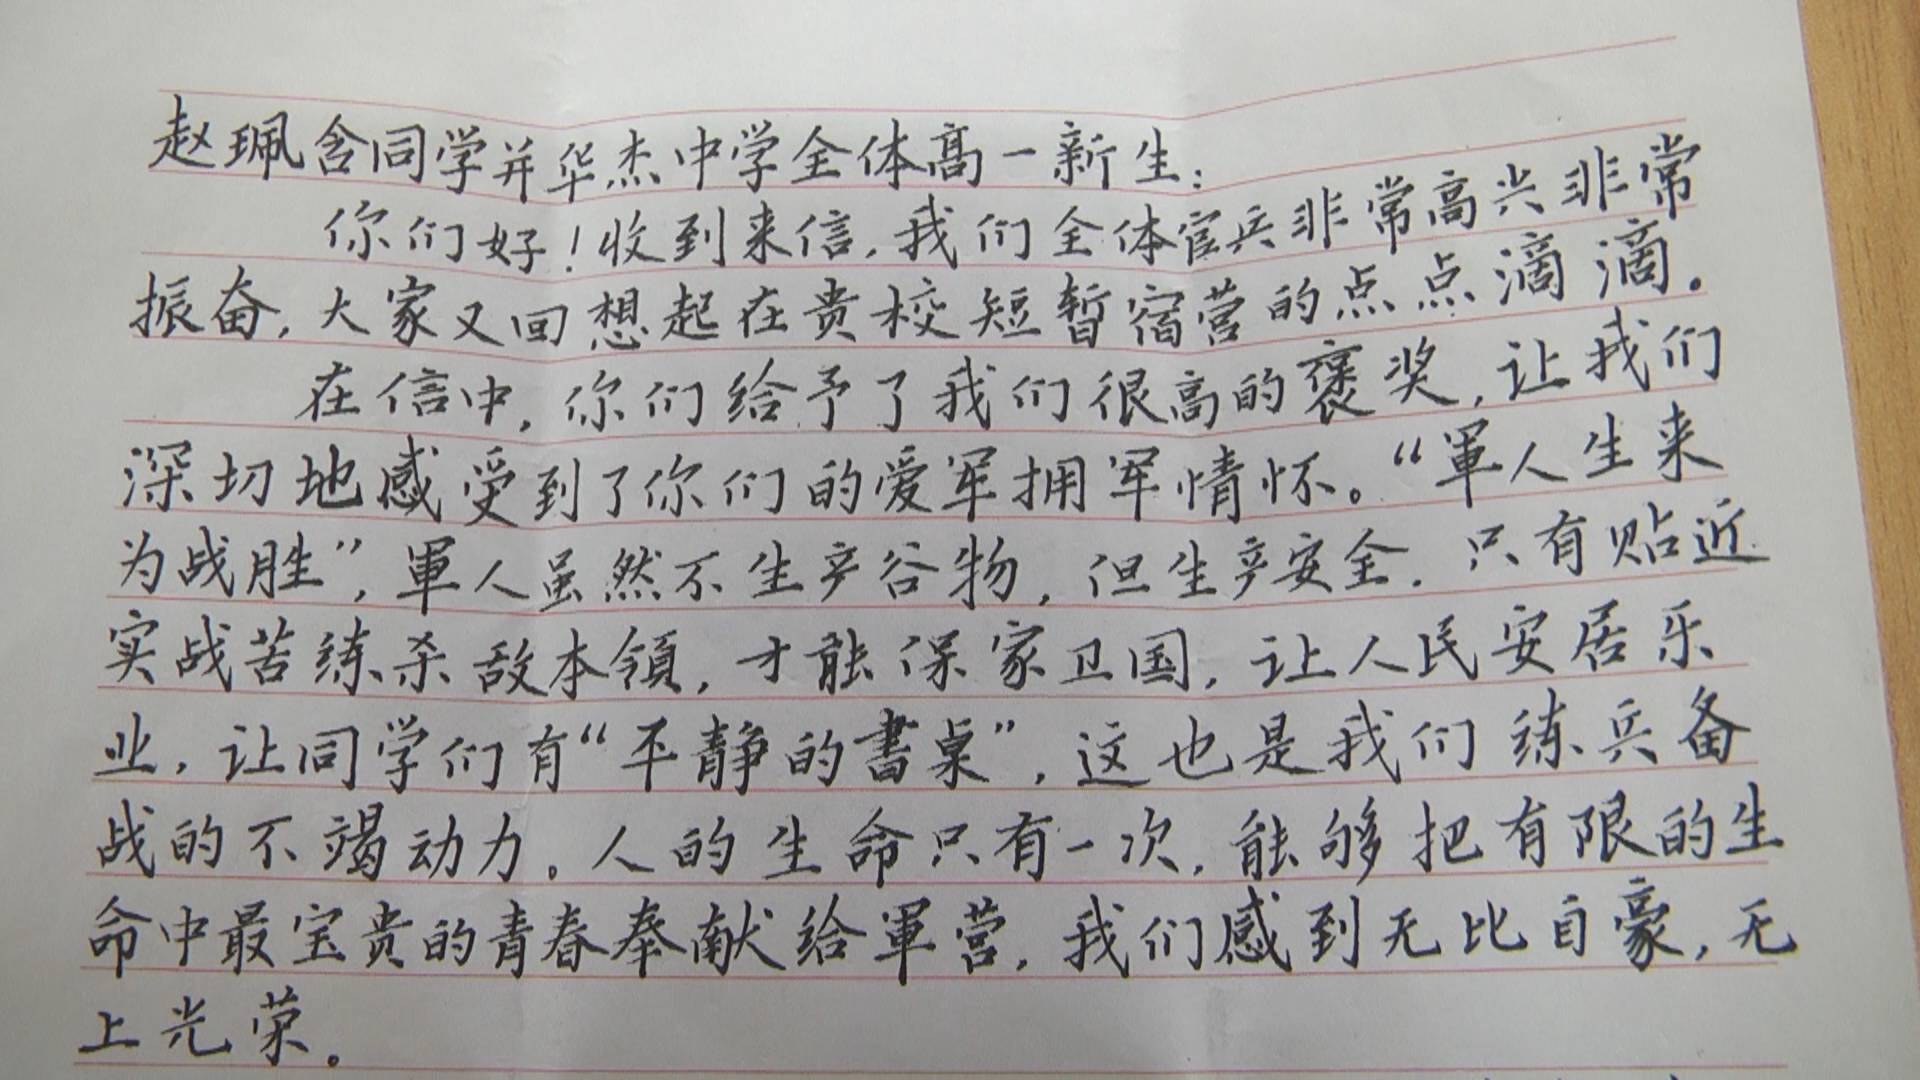 赵珮含同学并华杰中学全体高一新生：
你们好！收到来信，我们全体官兵非常高兴非常
振奋，大家又回想起在贵校短暂宿营的点点滴滴。
在信中，你们给予了我们很高的褒奖，让我们
深切地感受到了你们的爱军拥军情怀。“軍人生来
为战胜”，軍人虽然不生产谷物，但生产安全。只有贴近
实战苦练杀敌本領，才能保家卫国，让人民安居乐
业，让同学们有“平静的書桌”，这也是我们练兵备
战的不竭动力。人的生命只有一次，能够把有限的生
命中最宝贵的青春奉献给軍营，我们感到无比自豪，无
上光荣。